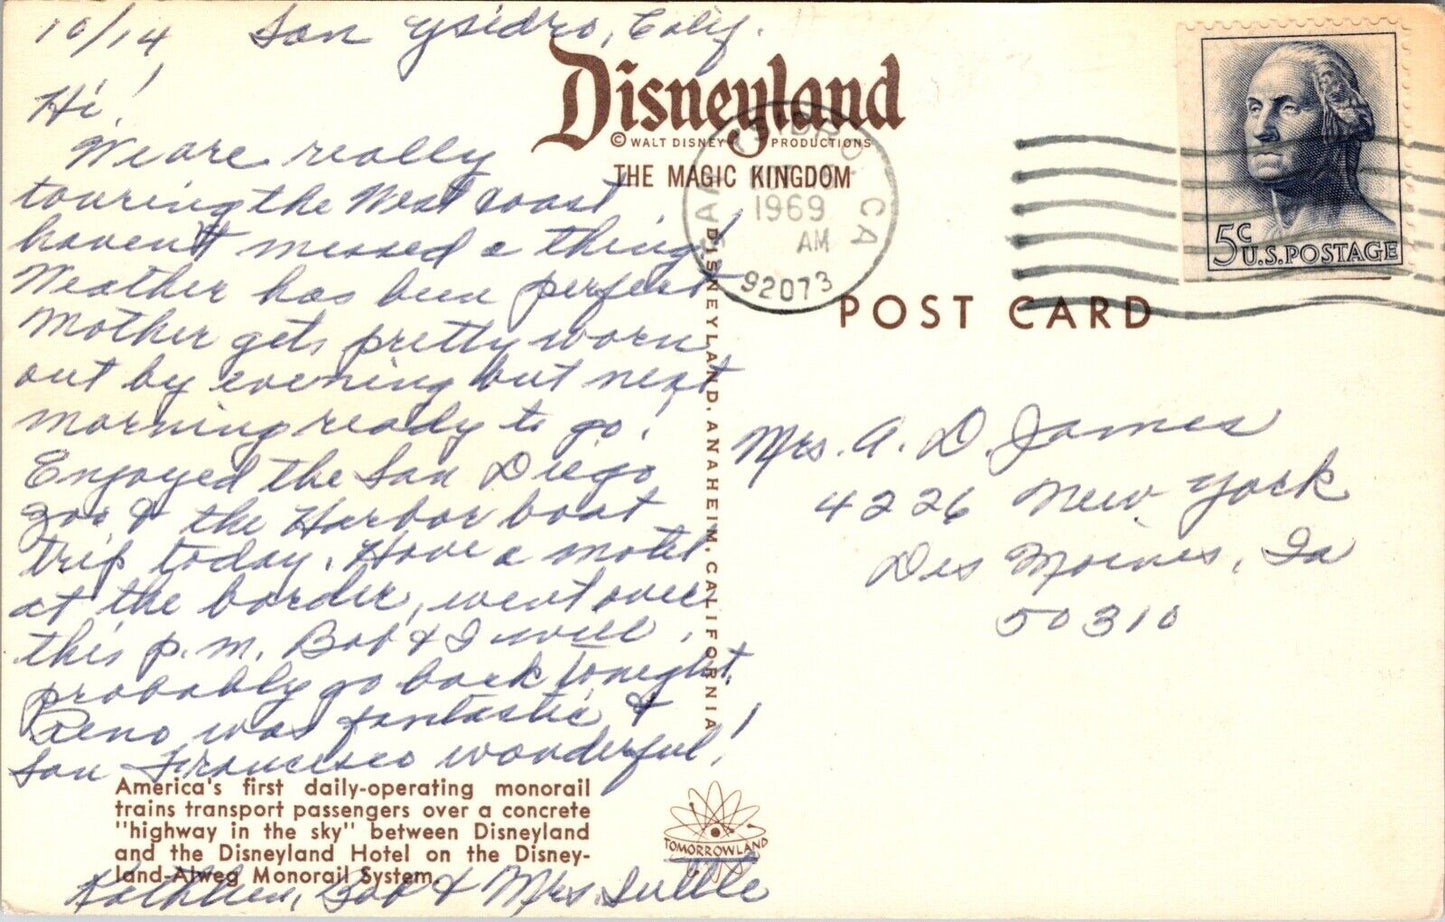 10/14 San Ysidro, Calif.
Hi!
We are really
touring the West coast
haven't missed a thing!
Weather has been perfect
Mother gets pretty worn
out by evening but next
morning ready to go!
Enjoyed the San Diego
zoo & the Harbor boat
trip today. Have a motel
at the border, went over
this p.m. Bob & I will
probably go back tonight.
Reno was fantastic &
San Francisco wonderful!
Kathleen, Bob & Mrs.
Disneyland
© WALT DISNEY PRODUCTIONS
THE MAGIC KINGDOM
DISNEYLAND, ANAHEIM, CALIFORNIA
America's first daily-operating monorail
trains transport passengers over a concrete
"highway in the sky" between Disneyland
and the Disneyland Hotel on the Disney-
land-Alweg Monorail System.
TOMORROWLAND
SAN YSIDRO CA
1969
AM
92073
5c
U.S. POSTAGE
POST CARD
Mrs. A. D. James
4226 New York
Des Moines, Ia
50310